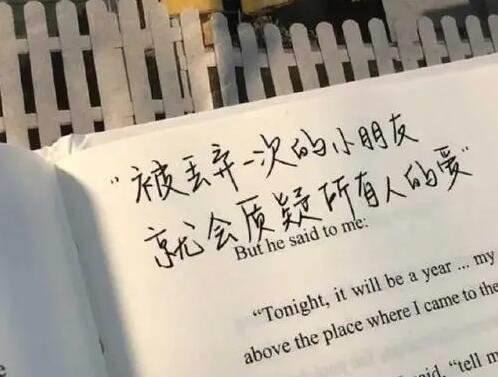 "被丢弃一次的小朋友
就会质疑所有人的爱"
But he said to me:
"Tonight, it will be a year ... my
above the place where I came to the
said, "tell m
e